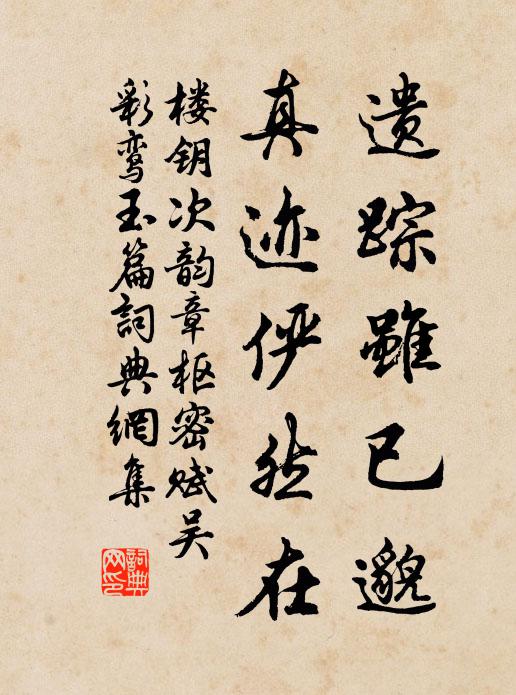 遗踪雖已邈
真迹俨然在
楼钥次韵章枢密赋吴
彩鸾玉篇詞典網集
詞典网印